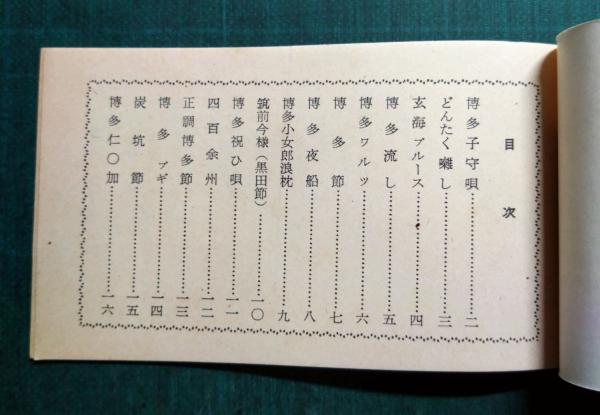 目次
博多子守唄……………二
どんたく囃し……………三
玄海ブルース……………四
博多流し……………五
博多ワルツ……………六
博多節……………七
博多夜船……………八
博多小女郎浪枕……………九
筑前今様（黒田節）……………一〇
博多祝ひ唄……………一一
四百余州……………一二
正調博多節……………一三
博多ブギ……………一四
炭坑節……………一五
博多仁〇加……………一六